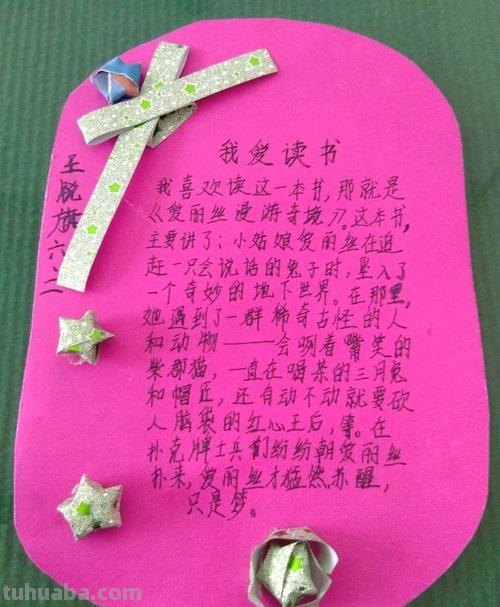 我爱读书
王脱旗
六.二
我喜欢读这一本书,那就是
《爱丽丝漫游奇境》。这本书,
主要讲了:小姑娘爱丽丝在追
赶一只会说话的兔子时,坠入了
一个奇妙的地下世界。在那里,
她遇到了一群稀奇古怪的人
和动物——会咧着嘴笑的
柴郡猫,一直在喝茶的三月兔
和帽匠,还自动不动就要砍
人脑袋的红心王后,等。在
扑克牌士兵们纷纷朝爱丽丝
扑来,爱丽丝才猛然苏醒,
只是梦。
tuhuaba.com